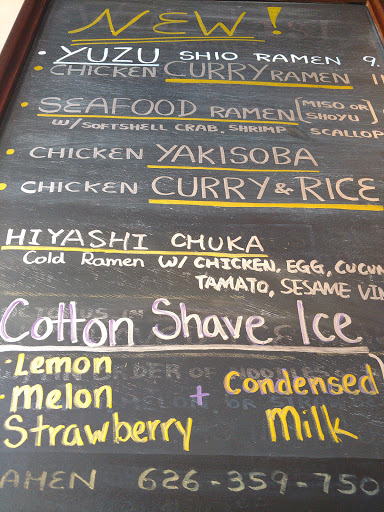 NEW!
• YUZU SHIO RAMEN 9.
• CHICKEN CURRY RAMEN 1
• SEAFOOD RAMEN [MISO OR SHOYU
W/SOFTSHELL CRAB, SHRIMP SCALLOP
• CHICKEN YAKISOBA
• CHICKEN CURRY & RICE
HIYASHI CHUKA
Cold Ramen W/ CHICKEN, EGG, CUCUM
TAMATO, SESAME VIN
Cotton Shave Ice
• Lemon
• Melon + Condensed
Strawberry Milk
AMEN 626-359-750